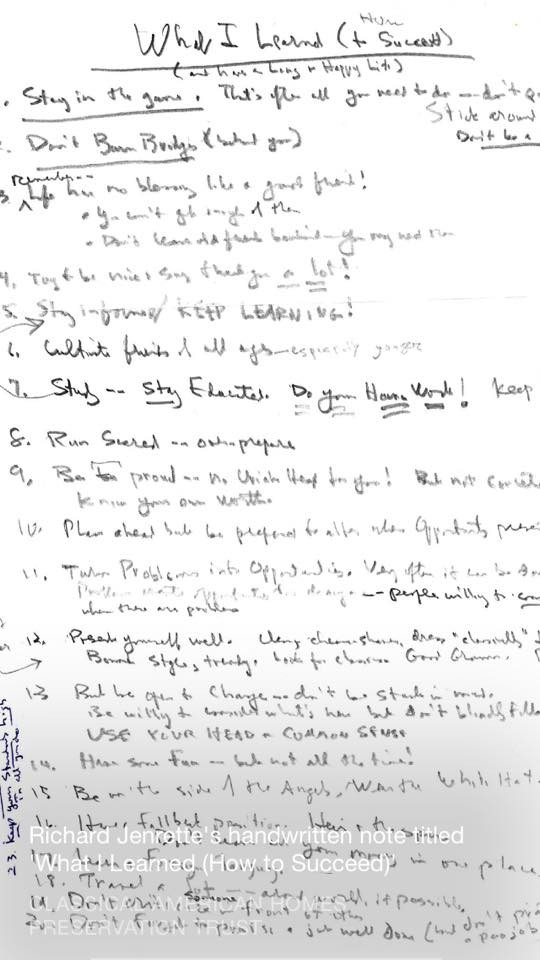 How
What I Learned (to Succeed)
(and have a Long & Happy Life)
1. Stay in the game. That's often all you need to do — don't
Stick around
Don't be a
2. Don't Burn Bridges (behind you)
Remember --
3. Life has no blessing like a good friend!
• You can't get enough of them
• Don't leave old friends behind — you may need them
4. Try to be nice & say thank you a lot!
5. Stay informed / KEEP LEARNING!
6. Cultivate friends of all ages — especially younger
7. Study -- Stay Educated. Do your Home Work! Keep
8. Run Scared -- over-prepare
9. Be proud -- no Uriah Heep for you! But not
Know your own worth.
10. Plan ahead but be prepared to alter when Opportunity
11. Turn Problems into Opportunities. Very often it can be
Problems create opportunities for change -- people willing to
when there are problems
12. Present yourself well. clean-shaven, dress "classically"
Good Grammar.
13 But be open to Change -- don't be stuck in mud.
Be willing to consider what's new but don't blindly
USE YOUR HEAD & COMMON SENSE
14. Have some Fun -- but not all the time!
15 Be on the side of the Angels. Wear the White Hat.
16. Have a fallback position.
in one place
18. Travel a lot -- around world, if possible.
19. Don't criticize someone in front of others
a job well done
23. Keep your Standards high
in all you do
Richard Jenrette's handwritten note titled
'What I Learned (How to Succeed)'
CLASSICAL AMERICAN HOMES
PRESERVATION TRUST